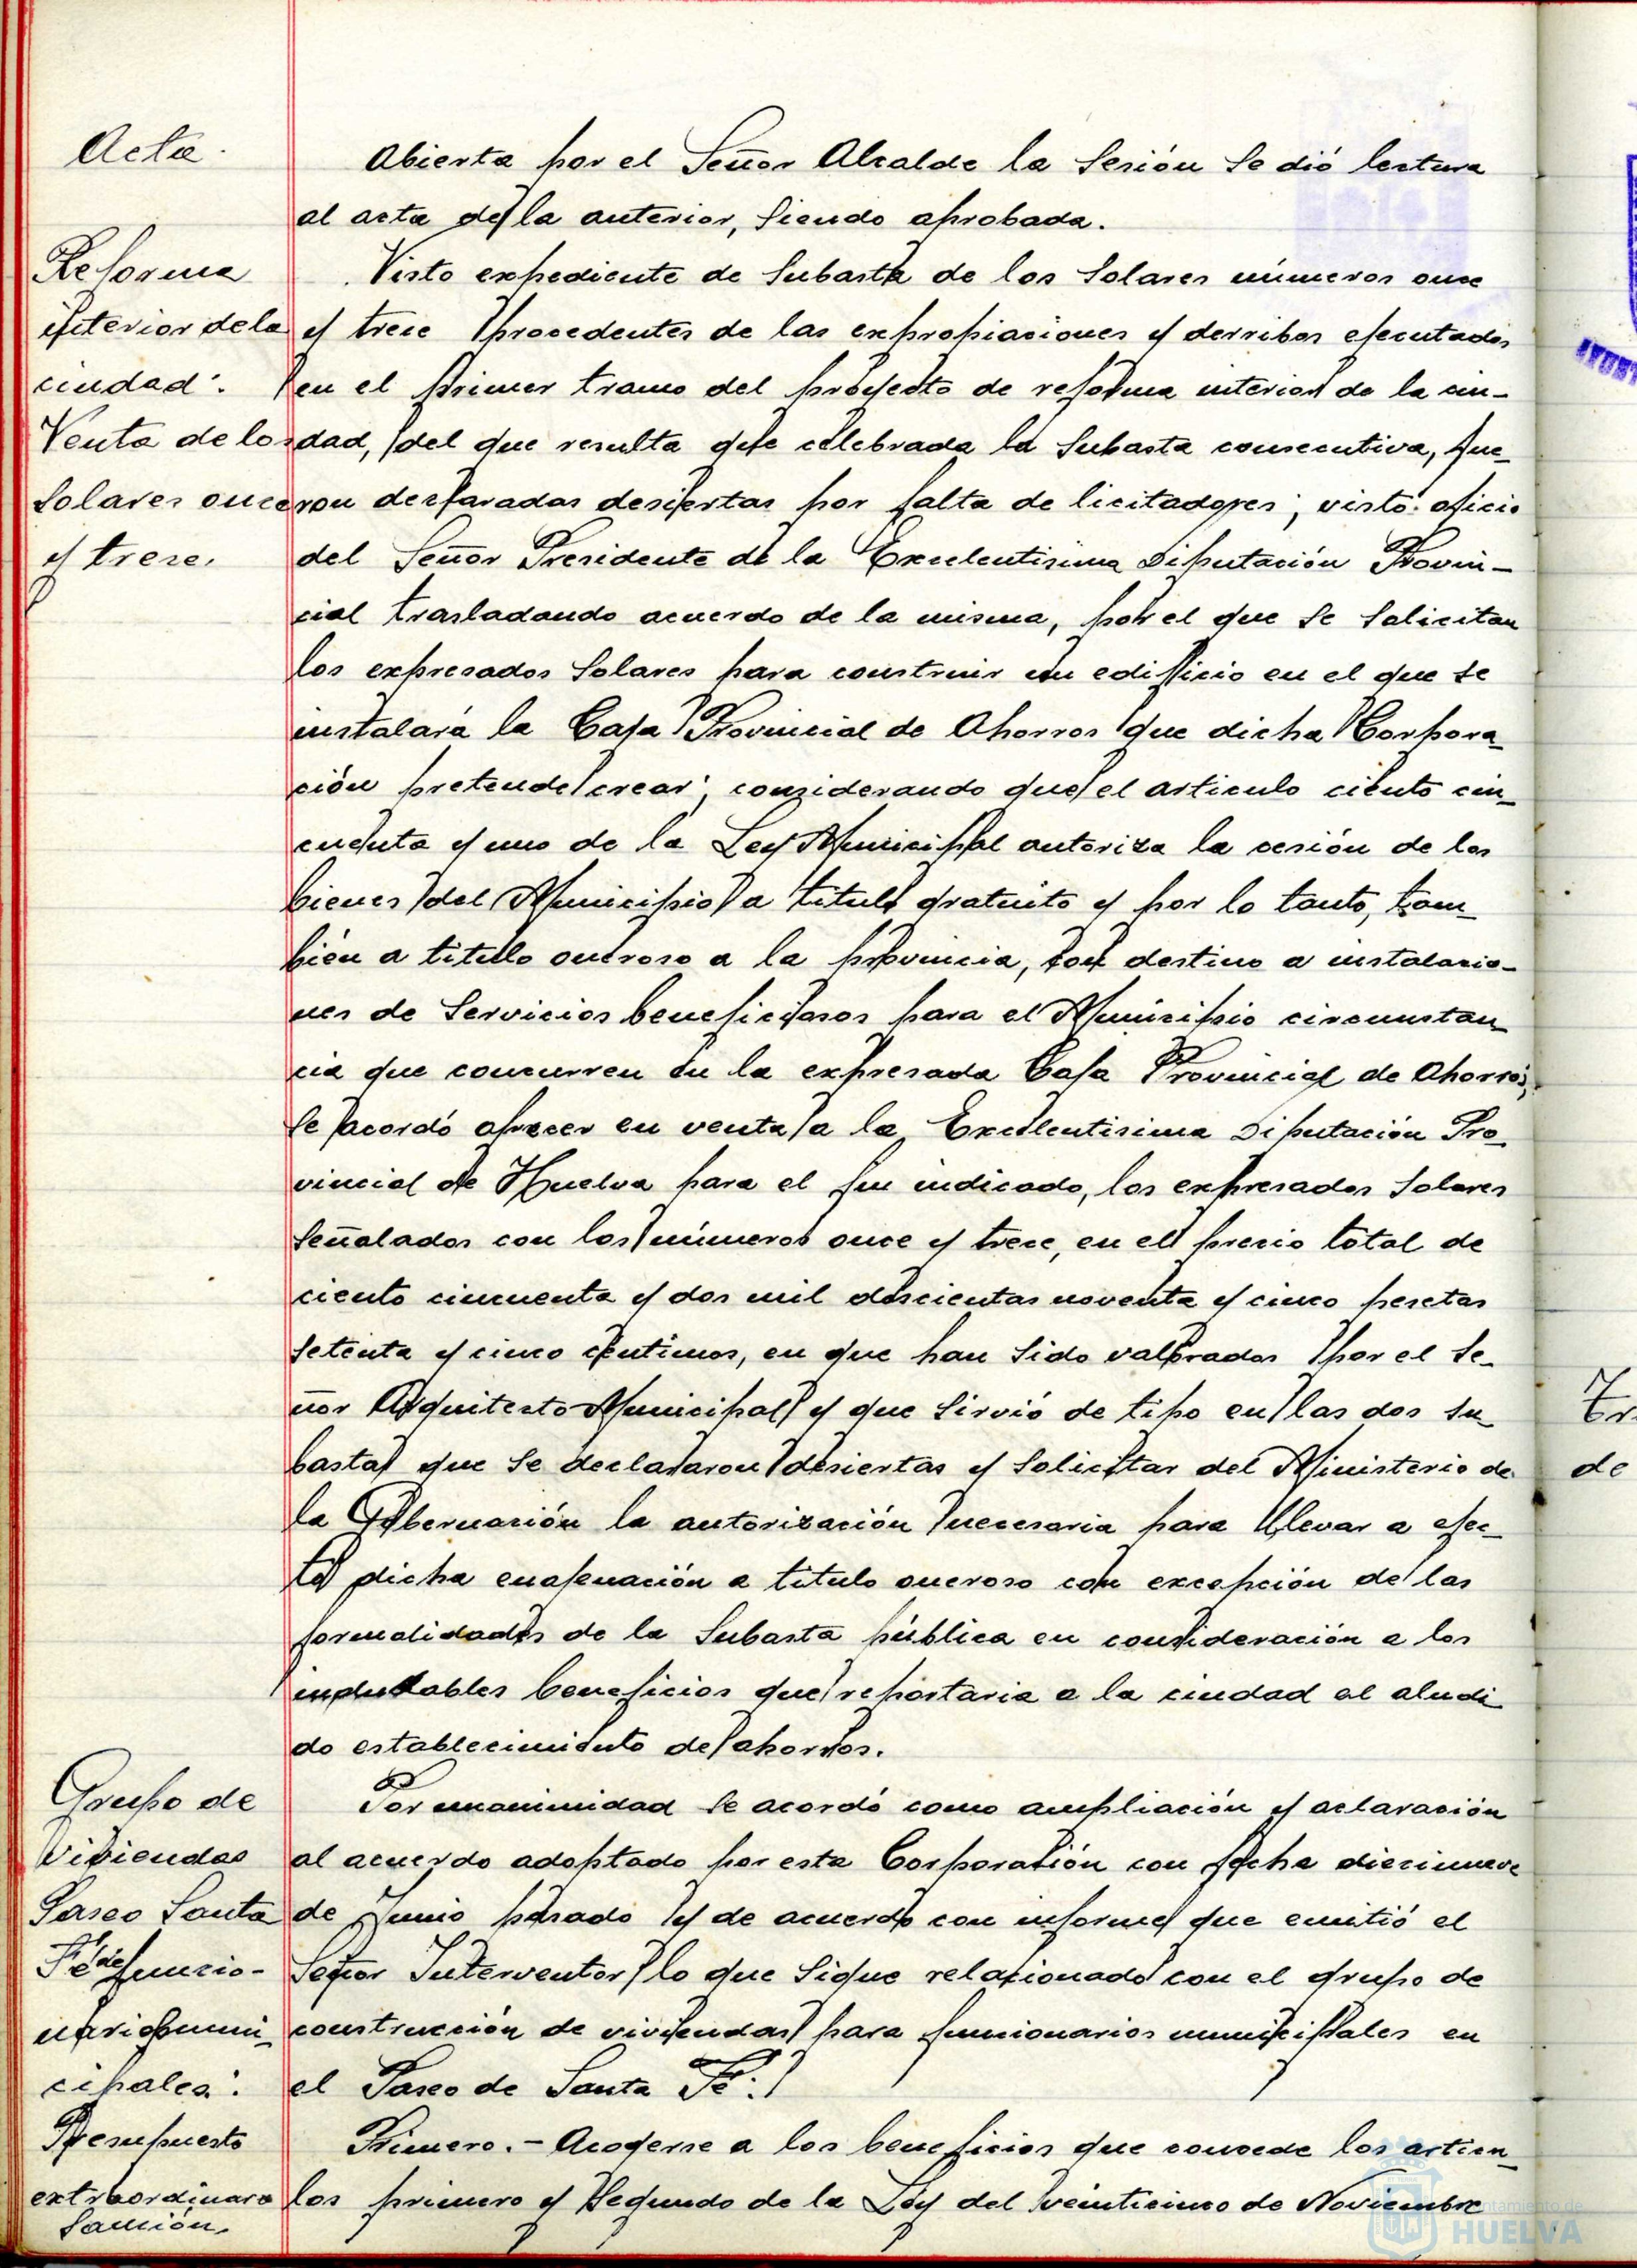 Acta.
Abierta por el Señor Alcalde la Sesión Se dió lectura
al acta de la anterior, Siendo aprobada.
Reforma
interior de la
ciudad:
Venta de los
Solares once
y trece.
Visto expediente de Subasta de los Solares números once
y trece procedentes de las expropiaciones y derribos ejecutados
en el primer tramo del proyecto de reforma interior de la ciu-
dad, del que resulta que celebrada la Subasta consecutiva, fue-
ron declaradas desiertas por falta de licitadores; visto oficio
del Señor Presidente de la Excelentísima Diputación Provin-
cial trasladando acuerdo de la misma, por el que se Solicitan
los expresados Solares para construir un edificio en el que se
instalará la Caja Provincial de Ahorros que dicha Corpora-
ción pretende crear; considerando que el artículo ciento cin-
cuenta y uno de la Ley Municipal autoriza la cesión de los
bienes del Municipio a título gratuito y por lo tanto, tam-
bién a título oneroso a la provincia, con destino a instalacio-
nes de Servicios beneficiosos para el Municipio circunstan-
cia que concurren en la expresada Caja Provincial de Ahorros,
Se acordó ofrecer en venta a la Excelentísima Diputación Pro-
vincial de Huelva para el fin indicado, los expresados Solares
Señalados con los números once y trece, en el precio total de
ciento cincuenta y dos mil doscientas noventa y cinco pesetas
Setenta y cinco céntimos, en que han Sido valorados por el Se-
ñor Arquitecto Municipal y que Sirvió de tipo en las dos Su-
bastas que Se declararon desiertas y Solicitar del Ministerio de
la Gobernación la autorización necesaria para llevar a efec-
to dicha enajenación a título oneroso con excepción de las
formalidades de la Subasta pública en consideración a los
indudables beneficios que reportaria a la ciudad el aludi-
do establecimiento de ahorros.
Grupo de
Viviendas
Paseo Santa
Fé de funcio-
narios muni-
cipales:
Presupuesto
extraordinaro
Sanción.
Por unanimidad Se acordó como ampliación y aclaración
al acuerdo adoptado por esta Corporación con fecha diecinueve
de Junio pasado y de acuerdo con informe que emitió el
Señor Interventor lo que Sigue relacionado con el grupo de
construcción de viviendas para funcionarios municipales en
el Paseo de Santa Fé:
Primero.- Acogerse a los beneficios que concede los artícu-
los primero y Segundo de la Ley del veinticinco de Noviembre
de
Ayuntamiento de
HUELVA